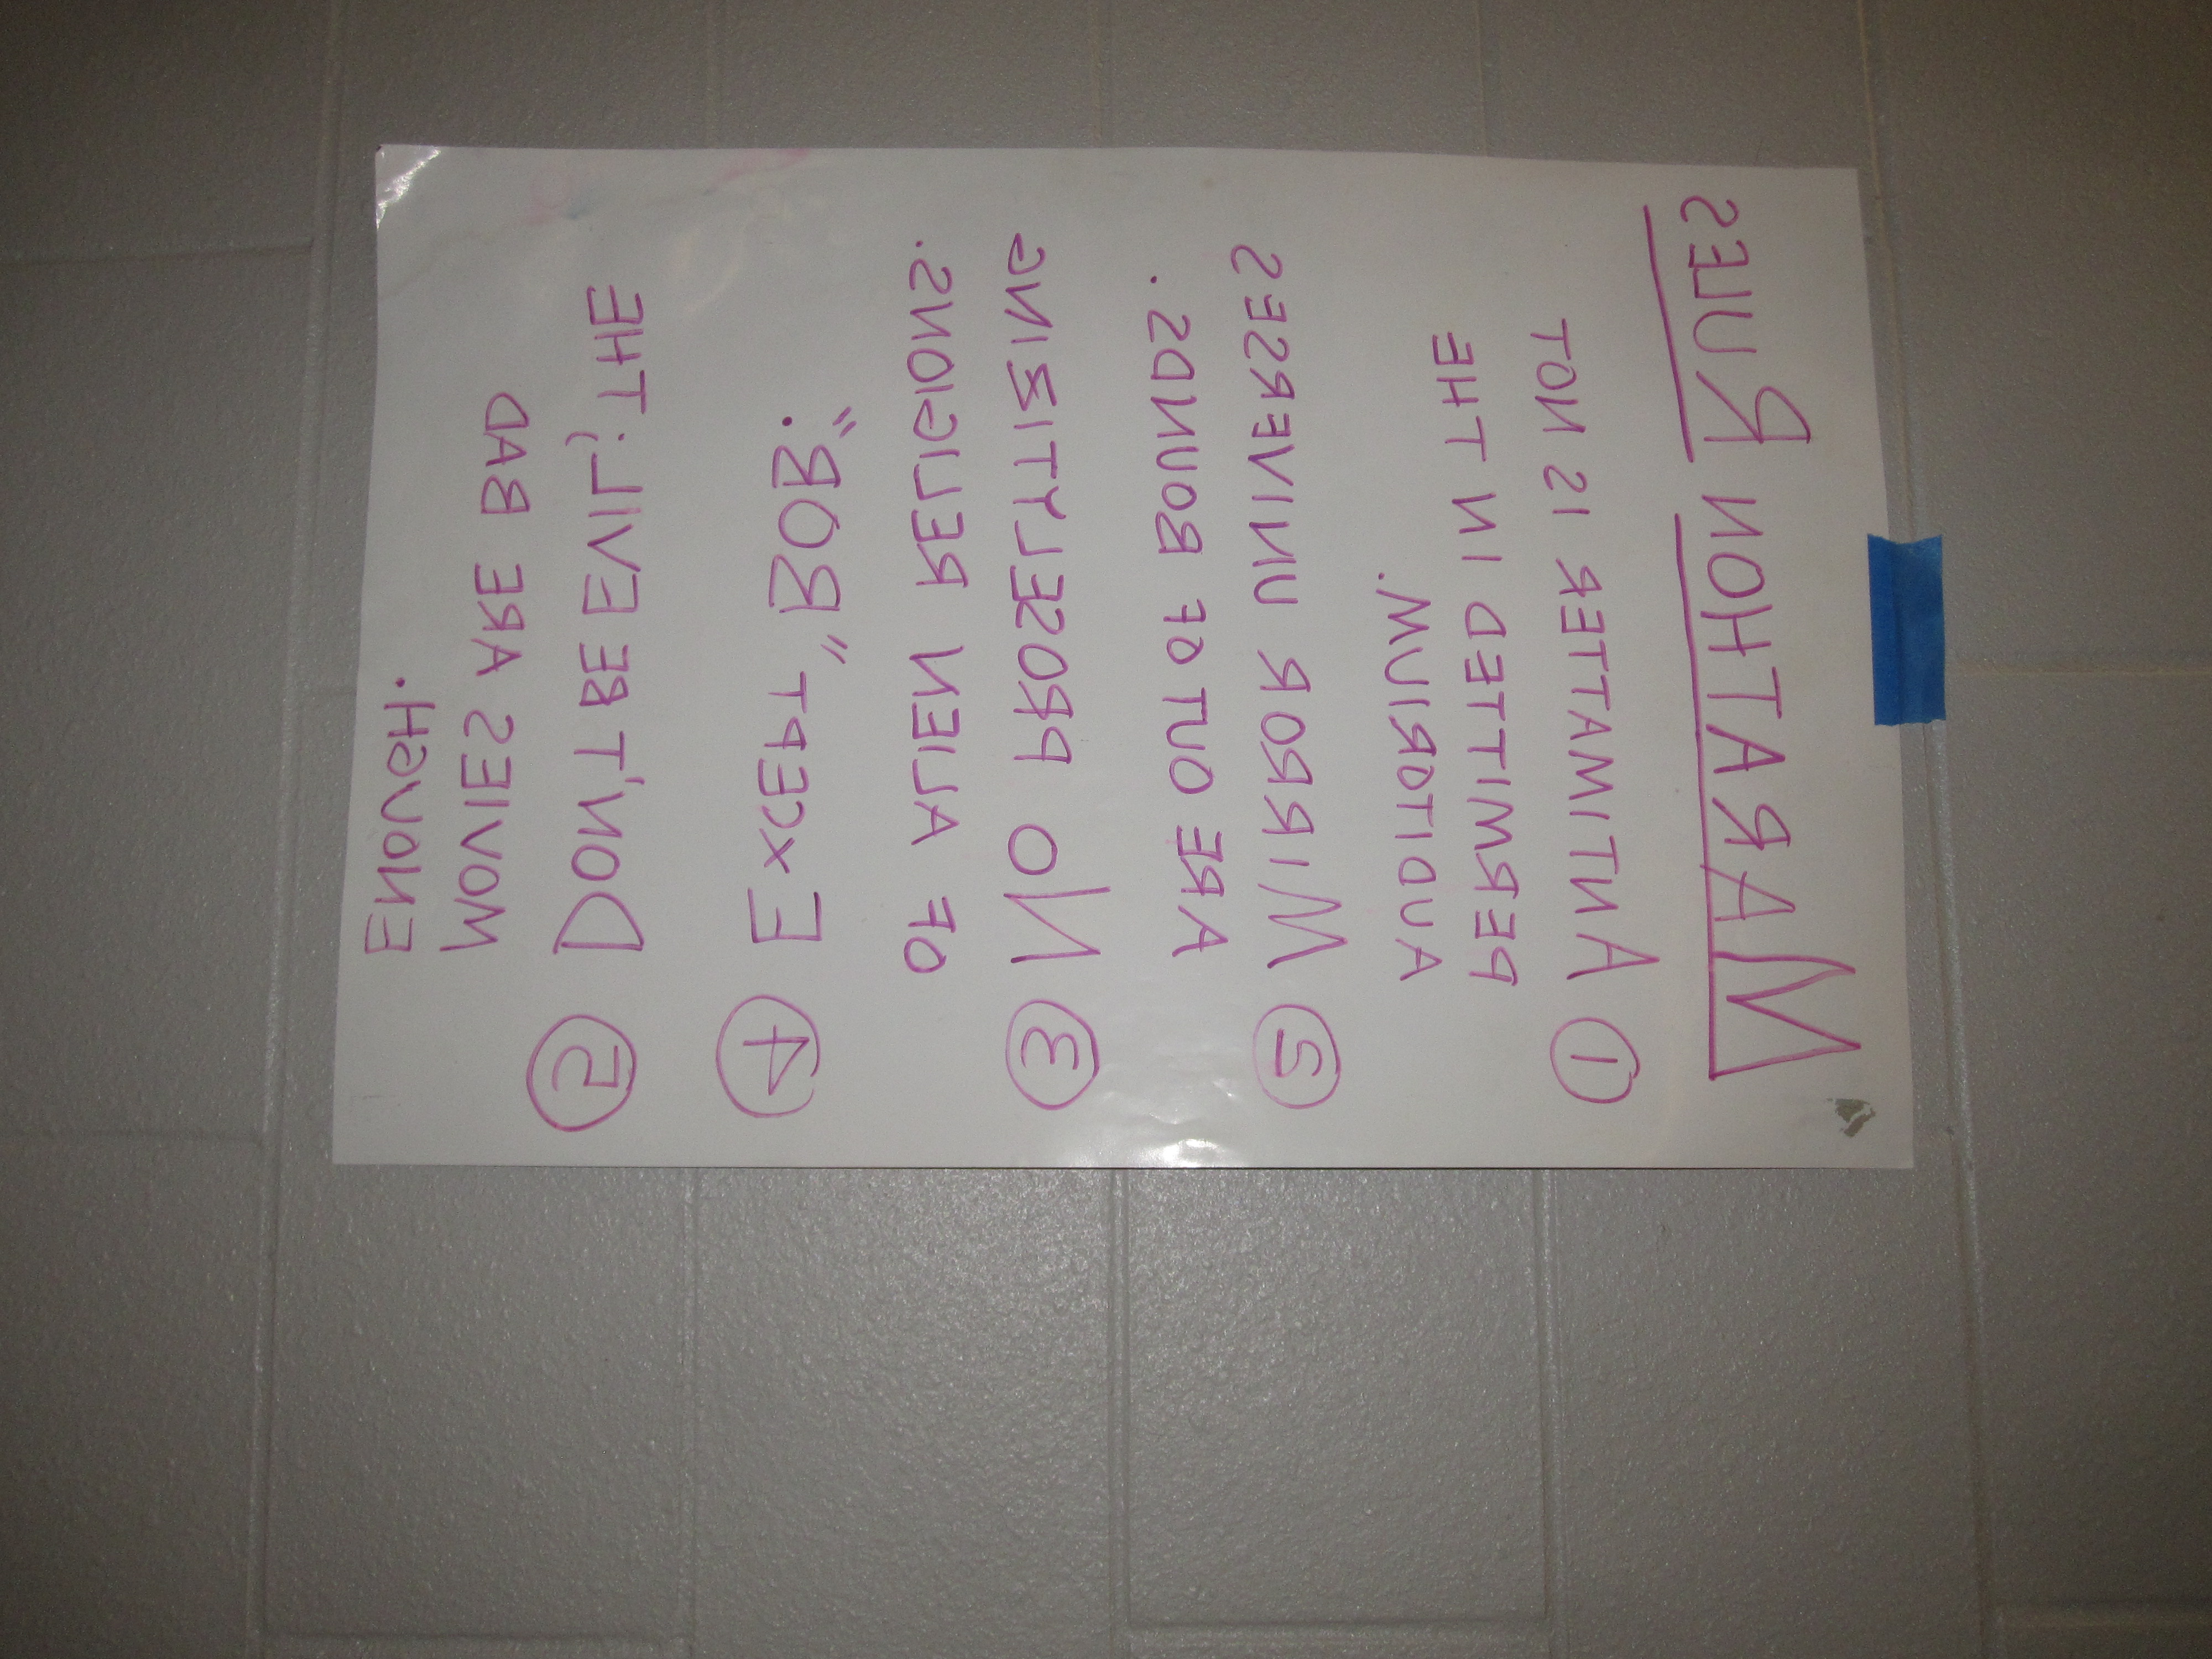 MARATHON RULES
① ANTIMATTER IS NOT
PERMITTED IN THE
AUDITORIUM.
② MIRROR UNIVERSES
ARE OUT OF BOUNDS.
③ NO PROSELYTIZING
OF ALIEN RELIGIONS.
④ EXCEPT "ROB".
⑤ DON'T BE EVIL; THE
MOVIES ARE BAD
ENOUGH.